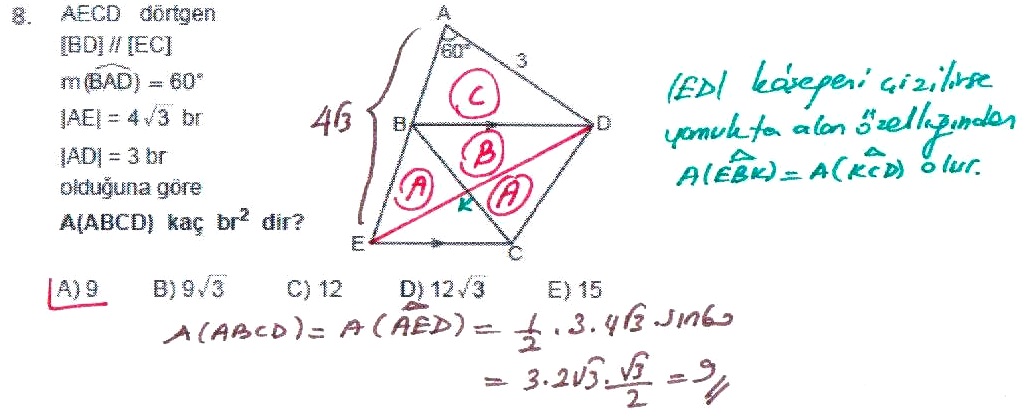 8. AECD dörtgen
[BD] // [EC]
m(BAD) = 60°
|AE| = 4√3 br
|AD| = 3 br
olduğuna göre
A(ABCD) kaç br² dir?
A
60°
3
C
4√3
B
D
B
A
A
K
E
C
|ED| köşegeni çizilirse
yamukta alan özelliğinden
A(EBK) = A(KCD) olur.
A) 9 B) 9√3 C) 12 D) 12√3 E) 15
A(ABCD) = A(AED) = 1/2 . 3 . 4√3 . sin60
= 3.2√3 . √3/2 = 9//